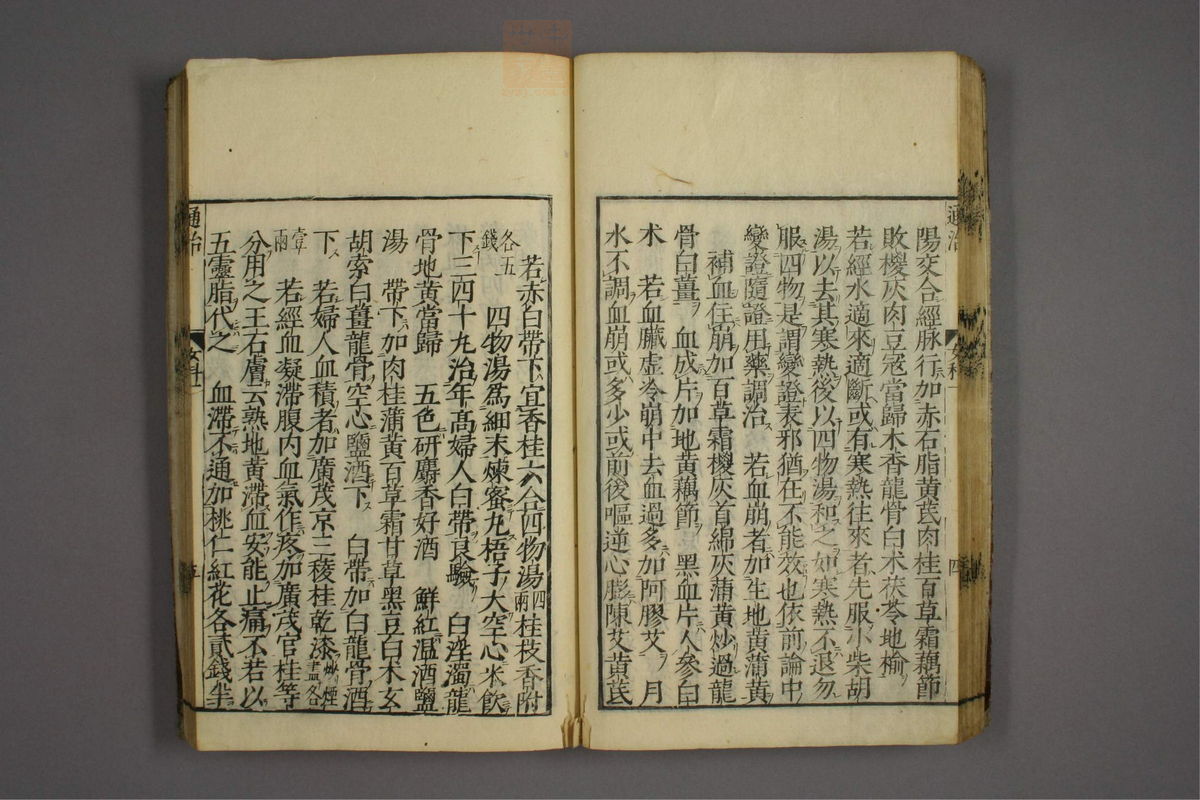 陽交合經脉行加赤石脂黄茋肉桂百草霜藕節
敗椶灰肉豆宼當歸木香龍骨白术茯苓地榆
若經水適來適斷或有寒熱往來者先服小柴胡
湯以去其寒熱後以四物湯和之如寒熱不退勿
服四物是謂變證表邪猶在不能效也依前論中
變證隨證用藥調治 若血崩者加生地黄蒲黄
補血住崩加百草霜椶灰首綿灰蒲黄炒過龍
骨白薑 血成片加地黄藕節 黑血片人參白
术 若血臟虚冷崩中去血過多加阿膠艾 月
水不調血崩或多少或前後嘔逆心膨陳艾黄茋
若赤白帶下宜香桂六合四物湯四兩桂枝香附
各五錢 四物湯爲細末煉蜜丸梧子大空心米飲
下三四十丸治年髙婦人白帶良驗 白淫濁龍
骨地黄當歸 五色研麝香好酒 鮮紅温酒鹽
湯 帶下加肉桂蒲黄百草霜甘草黑豆白术玄
胡索白薑龍骨空心鹽酒下 白帶加白龍骨酒
下 若婦人血積者加廣茂京三稜桂乾漆炒煙盡各
壹兩 若經血凝滯腹内血氣作疼加廣茂官桂等
分用之王石膚云熟地黄滯血安能止痛不若以
五靈脂代之 血滯不通加桃仁紅花各貳錢半
通治
女科一
四
通治
女科一